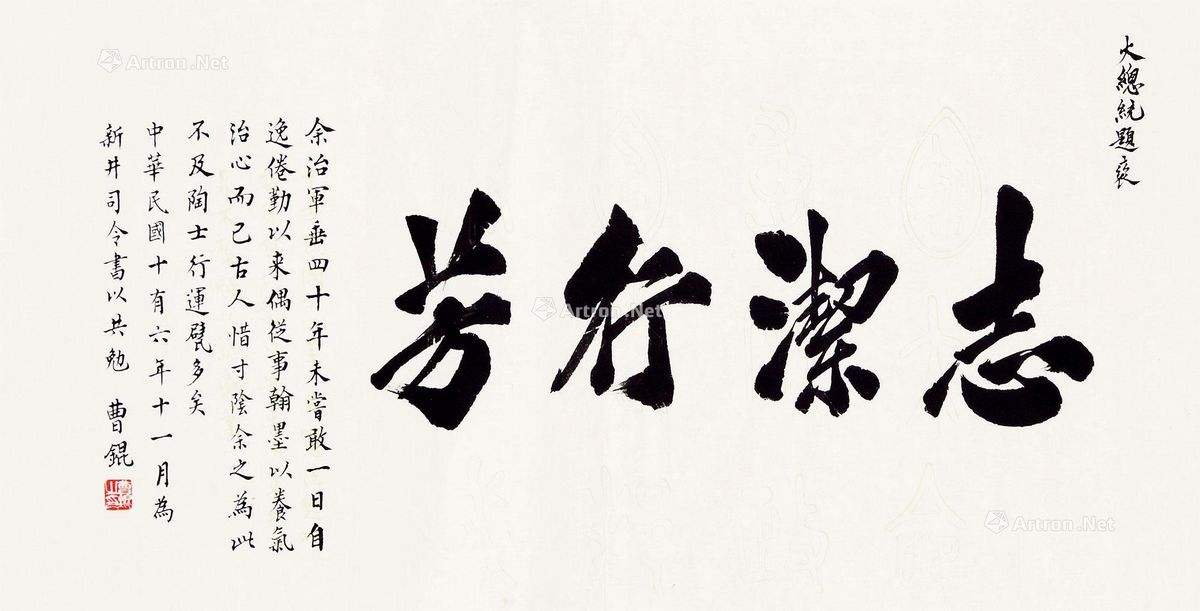 大總統題褒
志潔行芳
余治軍垂四十年未嘗敢一日自
逸倦勤以来偶從事翰墨以養氣
治心而已古人惜寸陰余之為此
不及陶士行運甓多矣
中華民國十有六年十一月為
新井司令書以共勉 曹錕
Artron.Net
Artron.Net
Artron.Net